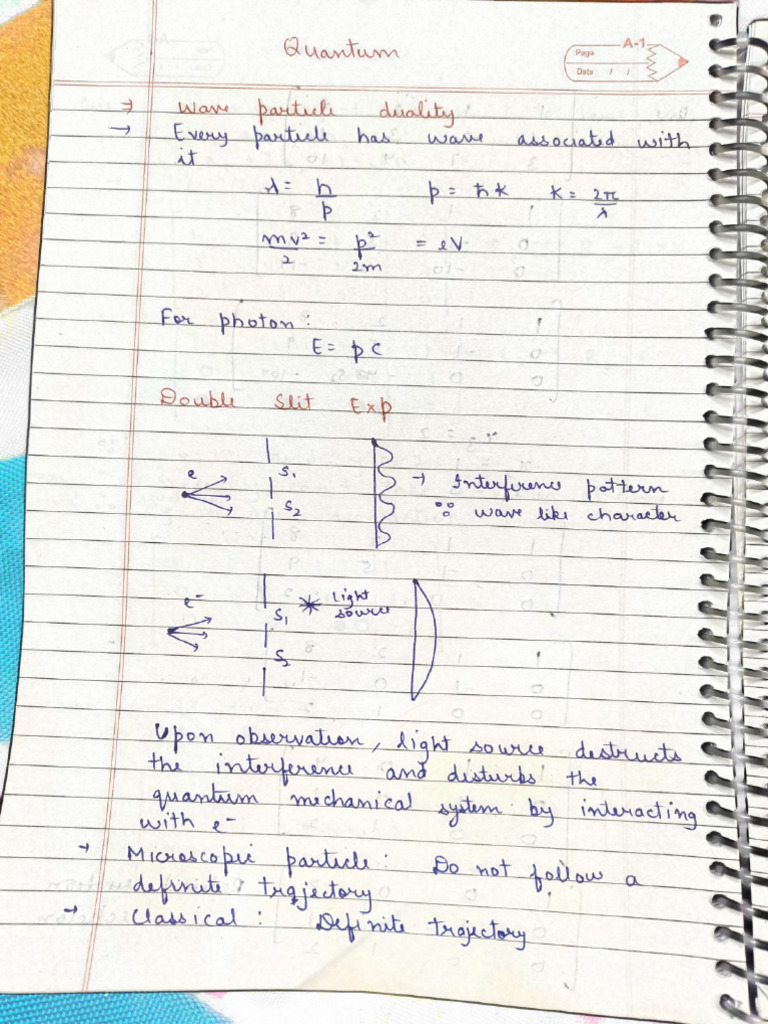 Quantum
A-1
Page
Date / /
⇒ Wave particle duality
→ Every particle has wave associated with
it
λ = h/p p = ħk k = 2π/λ
mv²/2 = p²/2m = eV
For photon:
E = pc
Double Slit Exp
e S₁ S₂
→ Interference pattern
∵ wave like character
e⁻ S₁ S₂
Light
source
Upon observation, light source destructs
the interference and disturbs the
quantum mechanical system by interacting
with e⁻
→ Microscopic particle: Do not follow a
definite trajectory
→ Classical: Definite trajectory